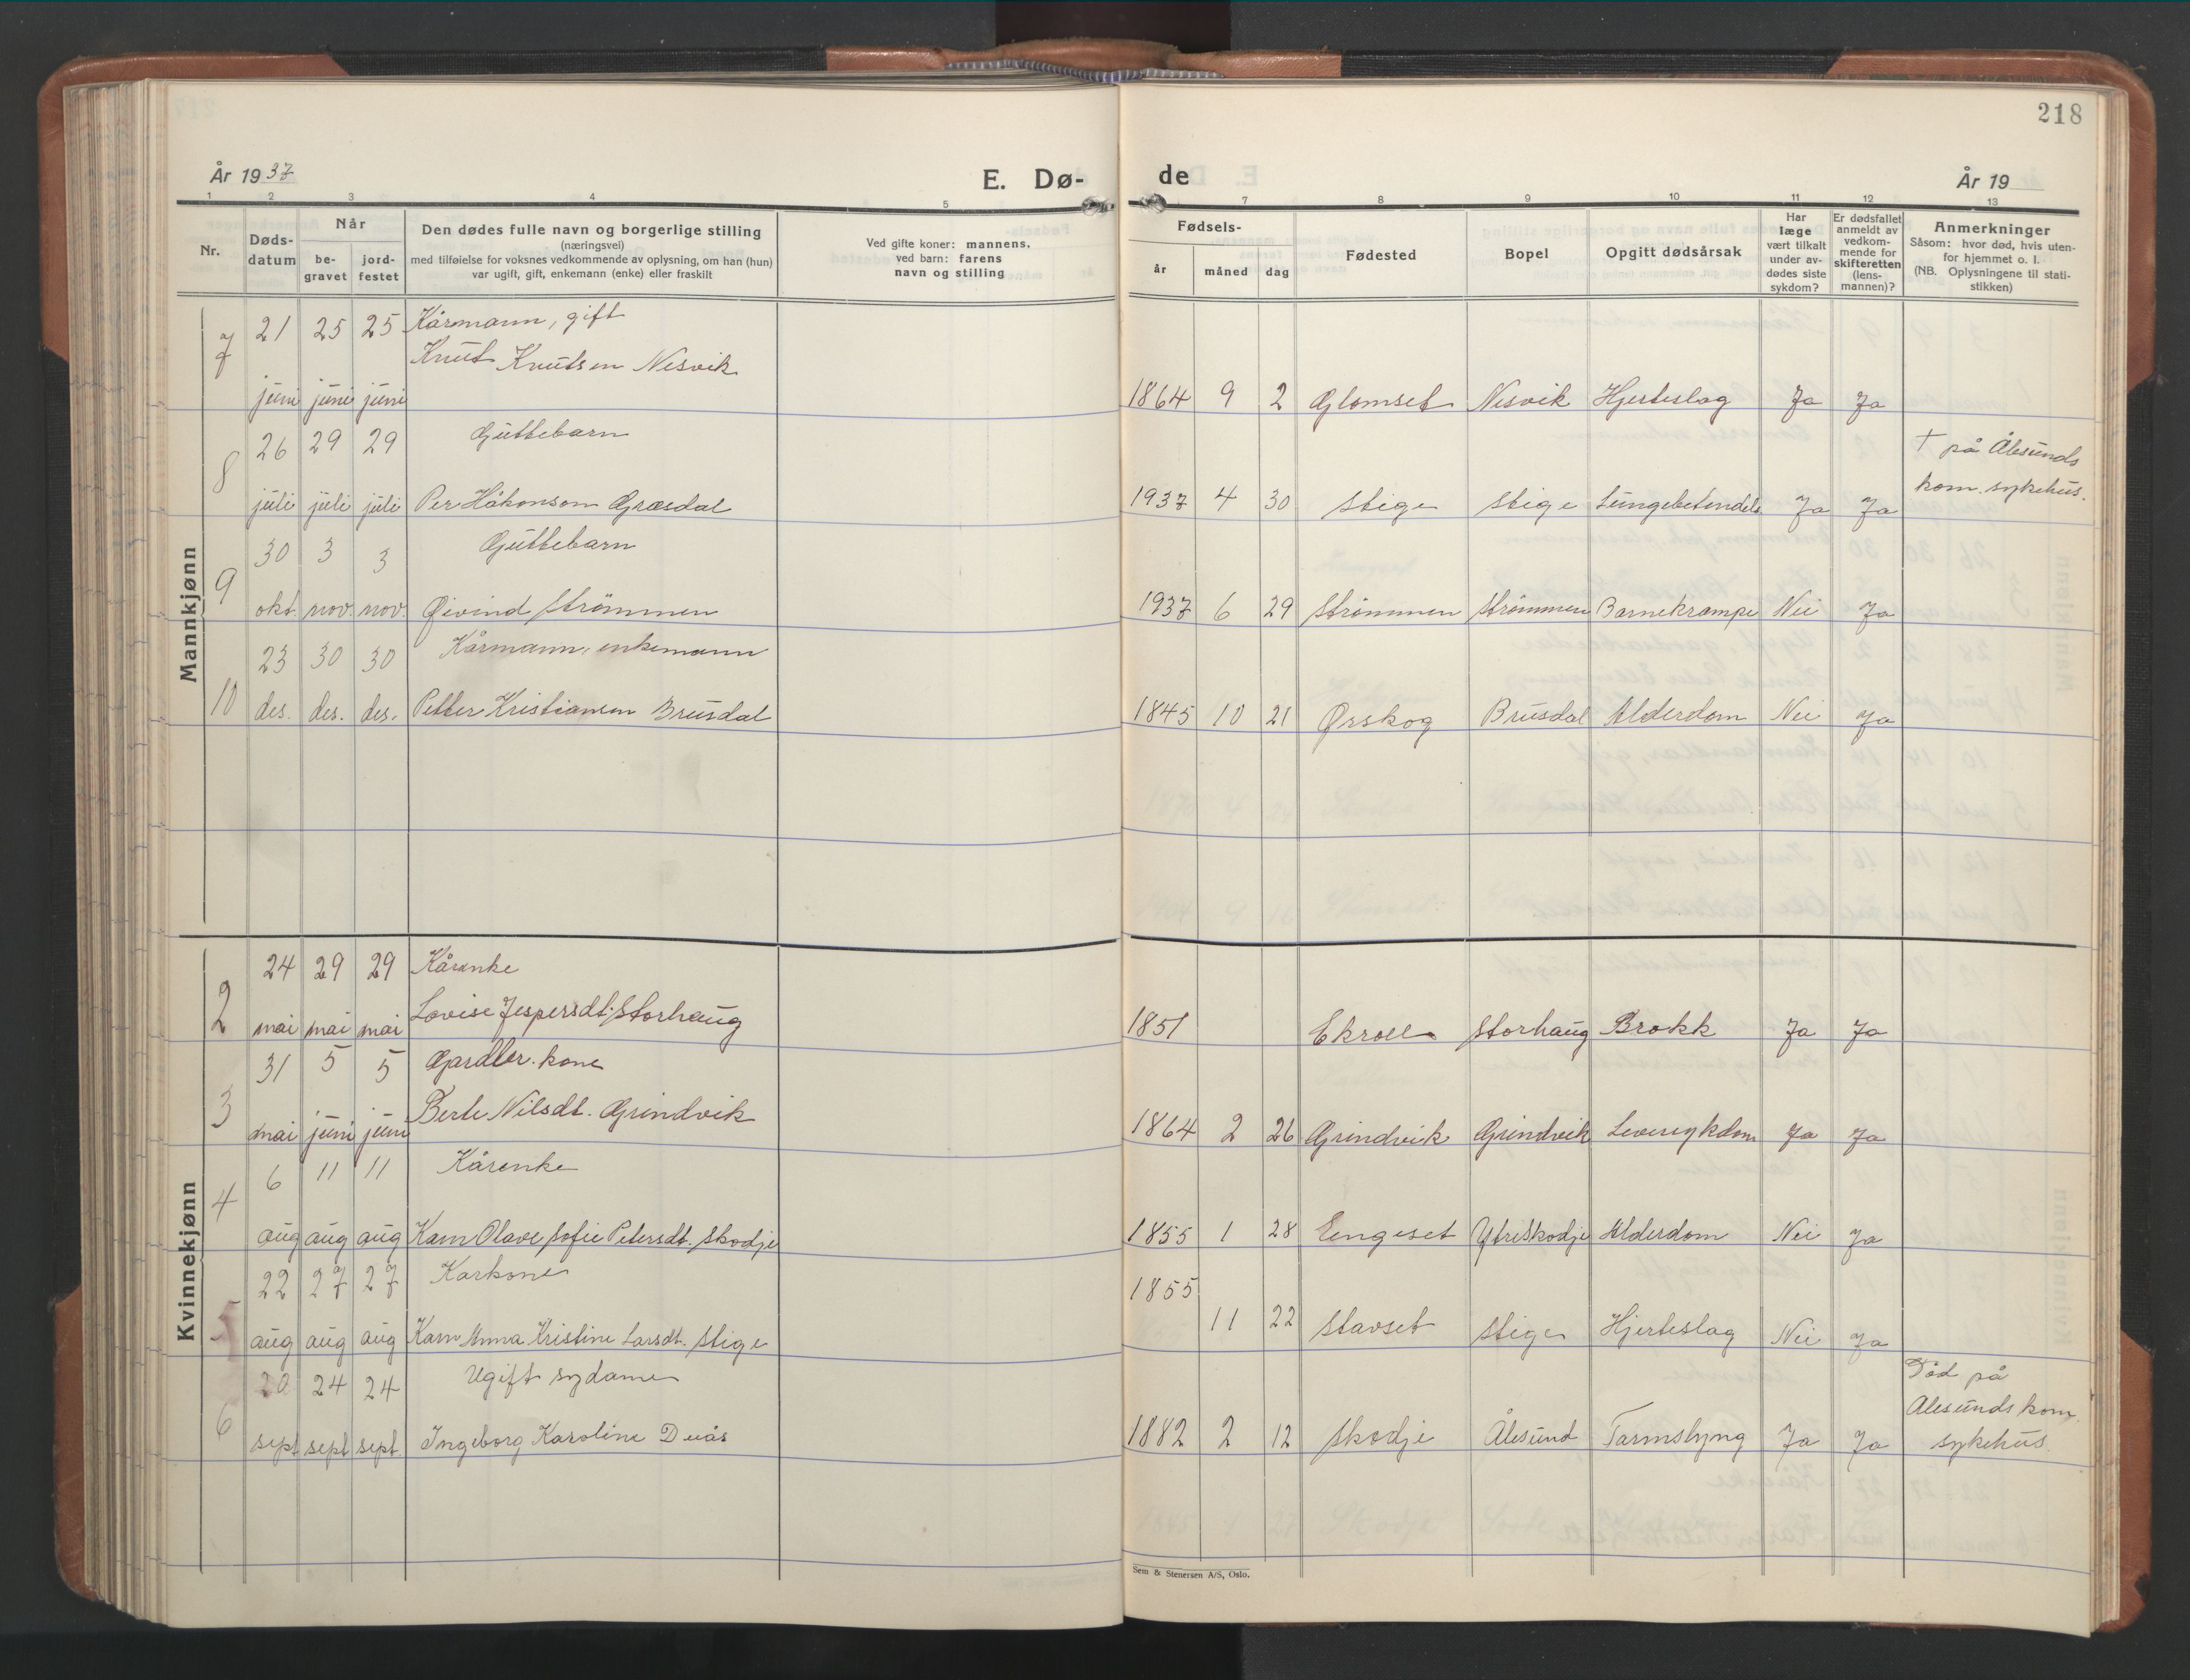 218
År 1937
E. Dø-
de
År 19
1 2 3 4 5 7 8 9 10 11 12 13
Nr.
Døds-
datum
Når
be-
gravet
jord-
festet
Den dødes fulle navn og borgerlige stilling
(næringsvei)
med tilføielse for voksnes vedkommende av oplysning, om han (hun)
var ugift, gift, enkemann (enke) eller fraskilt
Ved gifte koner: mannens,
ved barn: farens
navn og stilling
Fødsels-
år måned dag
Fødested
Bopel
Opgitt dødsårsak
Har
læge
vært tilkalt
under av-
dødes siste
sykdom?
Er dødsfallet
anmeldt av
vedkom-
mende for
skifteretten
(lens-
mannen)?
Anmerkninger
Såsom: hvor død, hvis uten-
for hjemmet o. l.
(NB. Oplysningene til stati-
stikken)
Mannkjønn
7 21 25 25 Kårmann, gift
Knut Knutsen Nesvik
juni juni juni 1864 9 2 Glomset Nesvik Hjerteslag Ja Ja
8 26 29 29 Guttebarn † på Ålesunds
juli juli juli Per Håkonson Græsdal 1937 4 30 Stige Stige Lungebetendels Ja Ja kom. sykehus.
9 30 3 3 Guttebarn
okt. nov. nov. Øivind Strömmen 1937 6 29 Strömmen Strömmen Barnekrampe Nei Ja
10 23 30 30 Kårmann, enkemann
des. des. des. Petter Kristiansen Brusdal 1845 10 21 Ørskog Brusdal Alderdom Nei Ja
Kvinnekjønn
2 24 29 29 Kårenke
mai mai mai Lovise Jespersdt. Storhaug 1851 Ekroll Storhaug Brokk Ja Ja
3 31 5 5 Gardbr. kone
mai juni juni Berte Nilsdt. Grindvik 1864 2 26 Grindvik Grindvik Leversykdom Ja Ja
4 6 11 11 Kårenke
aug aug aug Karn Olave Sofie Petersdt. Skodje 1855 1 28 Engeset Ytreskodje Alderdom Nei Ja
5 22 27 27 Karkone 1855
aug aug aug Karn Anna Kristine Larsdt. Stige 11 22 Stavset Stige Hjerteslag Nei Ja
6 20 24 24 Ugift sydame Död på
Ålesunds kom.
sept sept sept. Ingeborg Karoline Duås 1882 2 12 Skodje Ålesund Tarmslyng Ja Ja sykehus.
Sem & Stenersen A/S, Oslo.